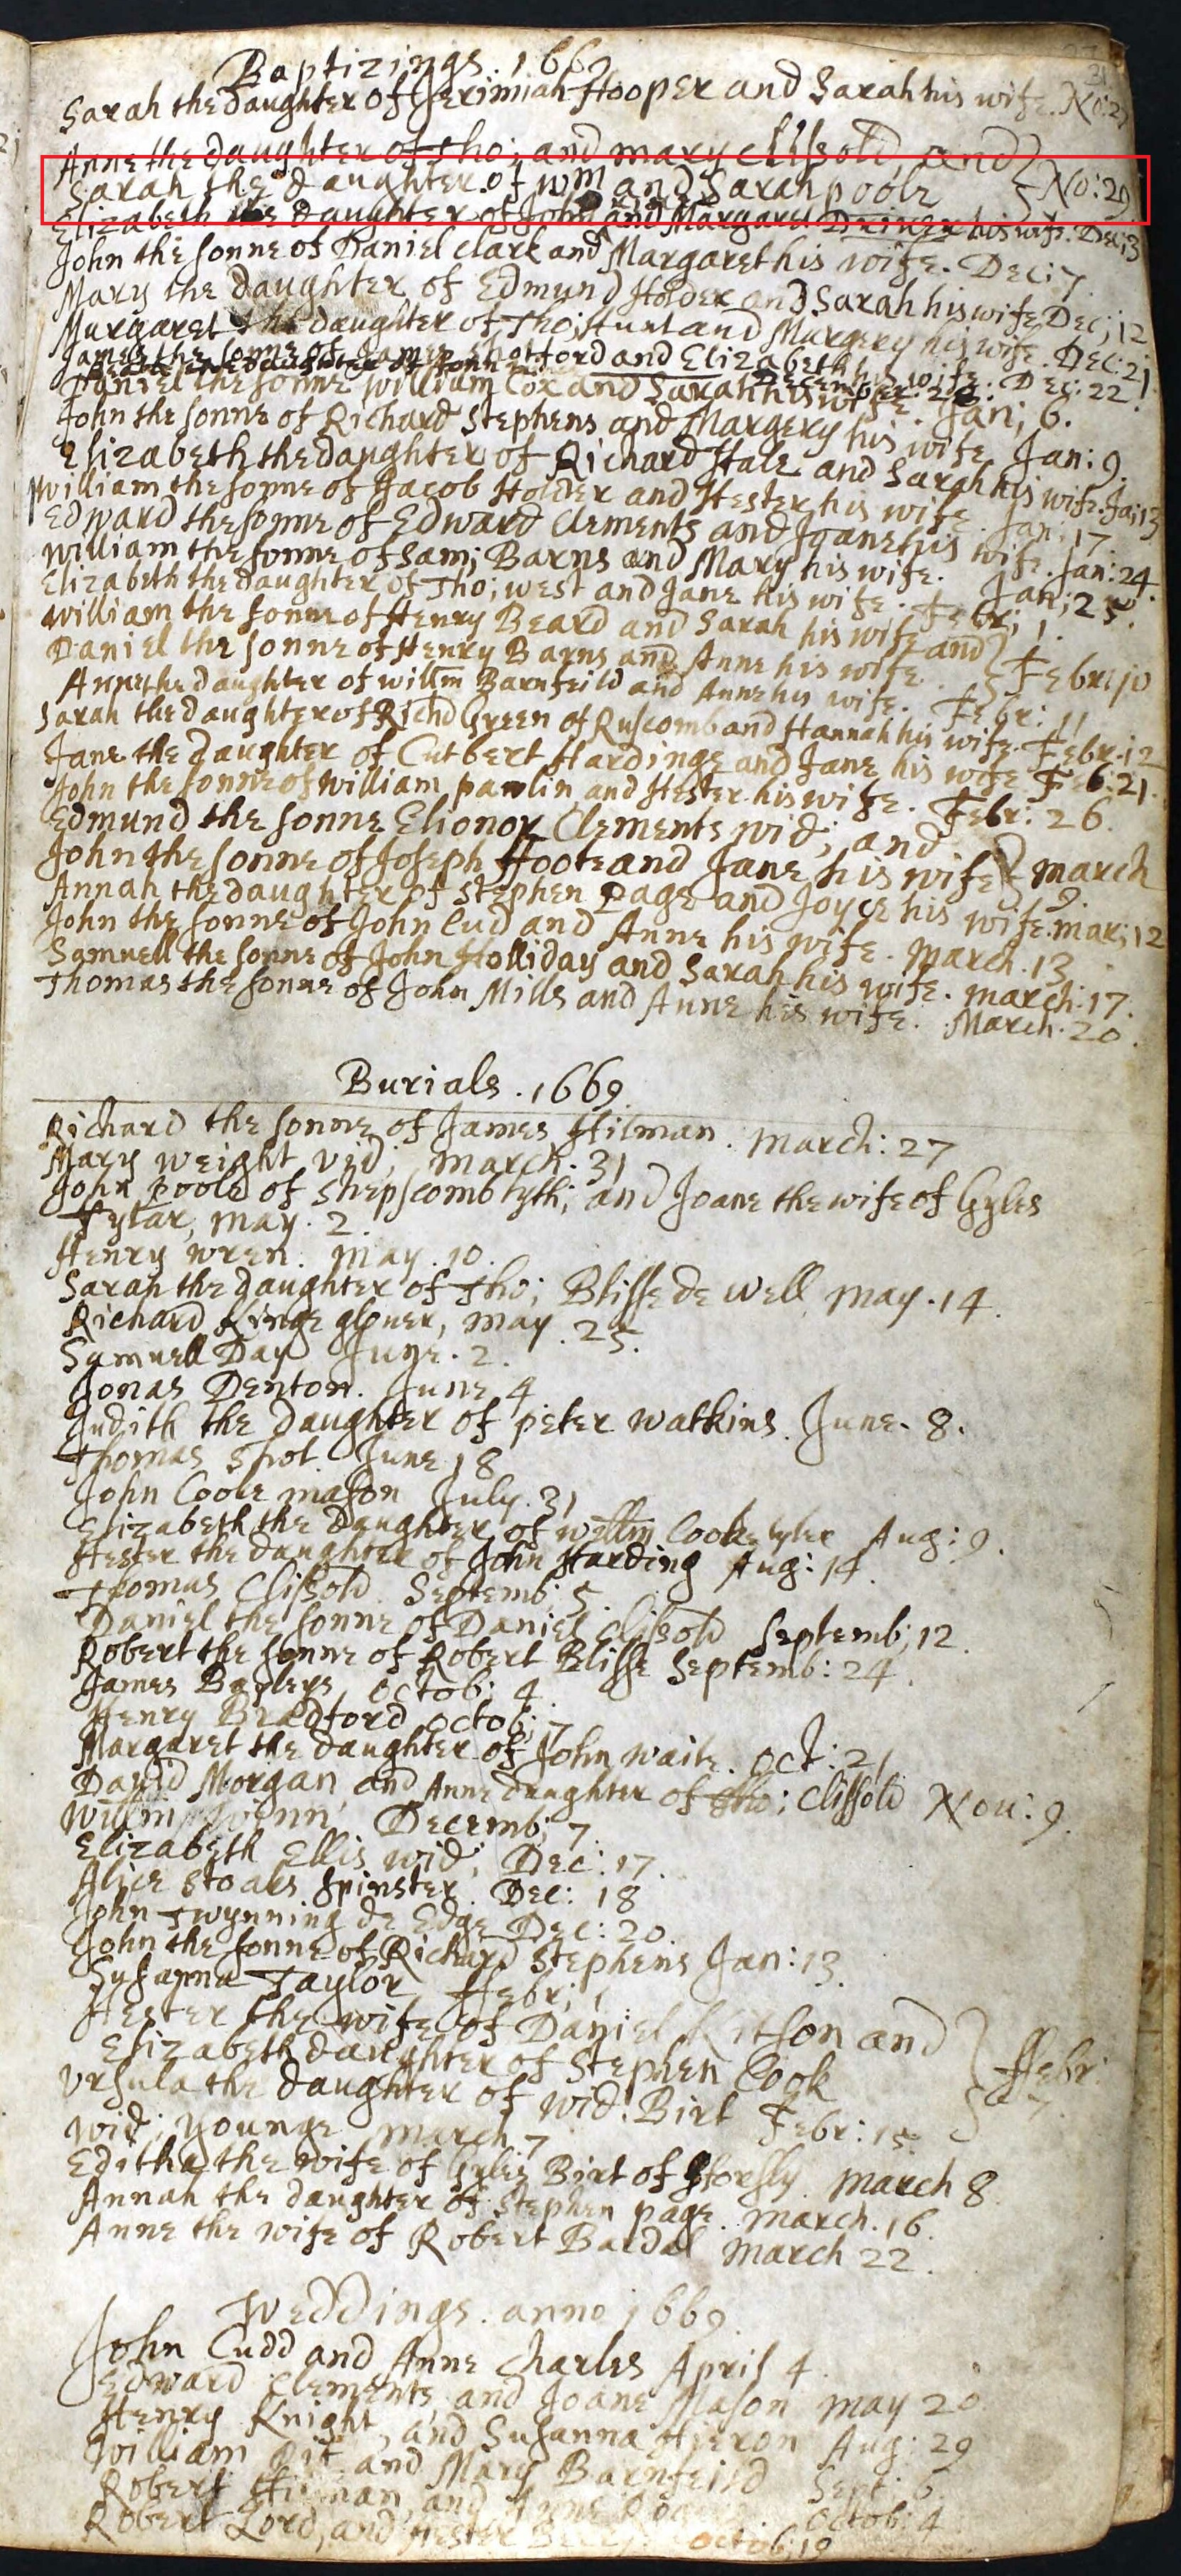 Baptizings. 1669
Sarah the daughter of Jerimiah Hooper and Sarah his wife. No: 2
Anne the daughter of Tho; and mary clissold, and
Sarah the daughter of wm and Sarah poole No: 29
Elizabeth the daughter of John and Margaret Driver his wife. Dec; 3
John the sonne of Daniel Clark and Margaret his wife. Dec: 7
Mary the daughter of Edmund Holder and Sarah his wife Dec; 12
Margaret the daughter of Tho; Hunt and Margery his wife. Dec: 21
James the sonne of James and Elizabeth his wife. Dec: 22
Daniel the sonne William Cox and Sarah his wife. Jan; 6.
John the sonne of Richard Stephens and Margery his wife Jan: 9
Elizabeth the daughter of Richard Hale and Sarah his wife. Ja; 13
William the sonne of Jacob Holder and Hester his wife. Jan; 17
Edward the sonne of Edward Clements and Joane his wife. Jan: 24
William the sonne of Sam; Barns and Mary his wife. Jan; 25.
Elizabeth the daughter of Tho; west and Jane his wife. Febr; 1.
William the sonne of Henry Beard and Sarah his wife and
Daniel the sonne of Henry Barns and Anne his wife. Febr: 10
Anne the daughter of willm Barnfeild and Anne his wife. Febr: 11
Sarah the daughter of Richd Green of Ruscomb and Hannah his wife. Febr: 12
Jane the daughter of Cutbert Hardinge and Jane his wife Feb: 21.
John the sonne of William pawlin and Hester his wife. Febr: 26.
Edmund the sonne Elionor Clements wid; and
John the sonne of Joseph Hoote and Jane his wife march 9.
Annah the daughter of Stephen page and Joyce his wife. mar; 12
John the sonne of John Cud and Anne his wife. March. 13
Samuell the sonne of John Holliday and Sarah his wife. march: 17.
Thomas the sonne of John Mills and Anne his wife. March. 20.
Burials. 1669.
Richard the sonne of James Hilman. March: 27
Mary weight vid; march. 31
John poole of shepscomb and Joane the wife of Gyles
may. 2.
Henry wren. may. 10.
Sarah the daughter of Tho; Blisse de well may. 14.
Richard Kinge glover, may. 25.
Samuell Day June. 2.
Jonas Denton. June 4
Judith the daughter of peter watkins. June. 8.
Thomas Shot. June 18
John Coole mason July. 31
Elizabeth the daughter of willm Cooke tyler Aug: 9.
Hester the daughter of John Harding Aug: 14.
Thomas Clissold. Septemb; 5.
Daniel the sonne of Daniel Clissold Septemb; 12.
Robert the sonne of Robert Blisse Septemb: 24.
James Bayleys octob; 4.
Henry Bradford octob; 7
Margaret the daughter of John waite. oct: 21
David Morgan and Anne daughter of Tho; Clissold Nov: 9.
Willm Decemb; 7.
Elizabeth Ellis wid; Dec: 17.
Alice Stoaks Spinster. Dec: 18
John Twynning de Edge Dec: 20.
John the sonne of Richard Stephens Jan: 13.
Susanna Taylor Febr; 1
Hester the wife of Daniel Kitson and
Elizabeth daughter of Stephen Cook Febr: 7.
Ursula the daughter of wid: Birt Febr: 15.
Wid; younge March. 7
Editha the wife of Gyles Birt of March 8
Annah the daughter of Stephen page. march. 16.
Anne the wife of Robert Bardal March 22.
Weddings. anno 1669.
John Cudd and Anne Charles April 4.
Edward Clements and Joane Mason may 20
Henry Knight, and Susanna Hieron Aug: 29
William Pit and Mary Barnfeild Sept; 5.
Robert Hilman, and Anne octob: 4
Robert Lord, and Hester octob; 19